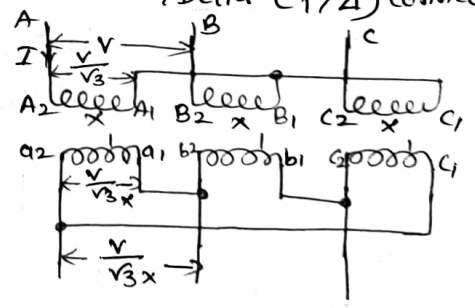 (Delta (Y/Δ) Connec
A B C
V
I V/√3
A2 x A1 B2 x B1 C2 x C1
a2 1 a1 b2 1 b1 C2 1 C1
V/√3x
V/√3x